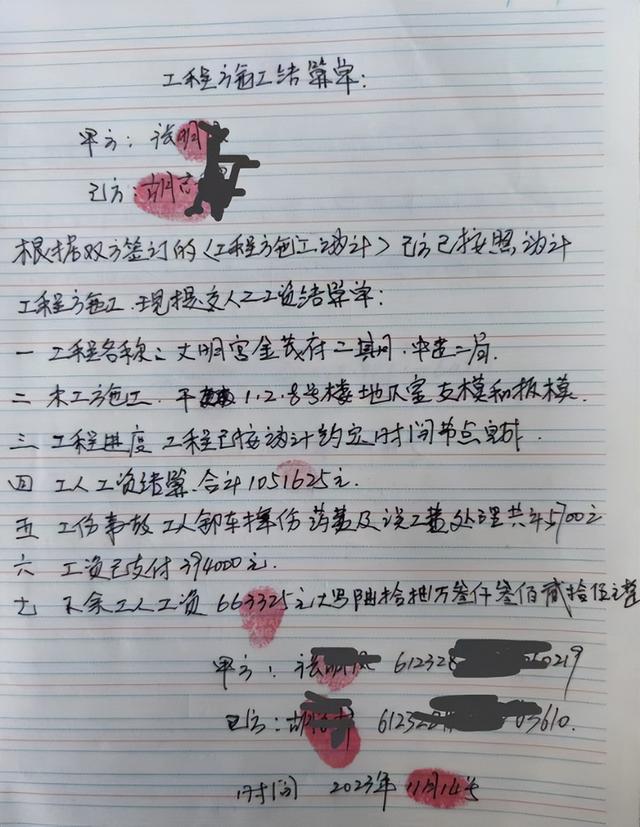 工程施工结算单:
甲方: 张明
乙方: 胡吉
根据双方签订的《工程施工协议》乙方已按照协议
工程施工 现提交人工工资结算单:
一 工程名称: 大明宫金茂府二期 中建二局.
二 木工施工. 干 1.2.8号楼地下室支模和拆模.
三 工程进度 工程已按协议约定时间节点完成.
四 工人工资结算 合计1051625元.
五 工伤事故 工人卸车摔伤药费及误工费处理共计5700元
六 工资已支付394000元.
七 下余工人工资 663325元 大写陆拾陆万叁仟叁佰贰拾伍元整
甲方: 张明 612328 0219
乙方: 胡 612328 03610.
时间 2023年11月14号